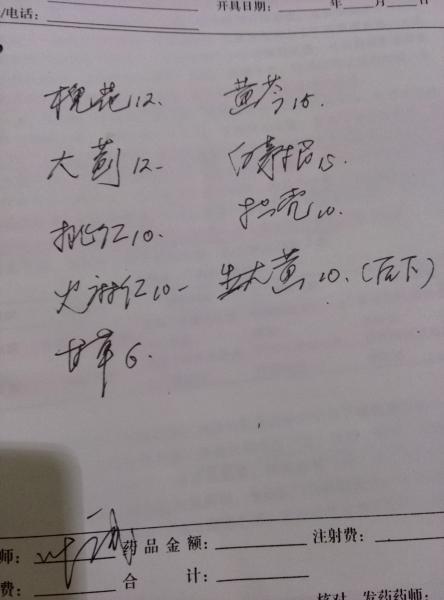 /电话： 开具日期： 年 月 日
槐花12. 黄芩15.
大蓟12-
枳壳10.
桃仁10.
火麻仁10- 生大黄10.（后下）
甘草6.
师： 药品金额： 注射费：
费： 合计：
核对、发药药师：